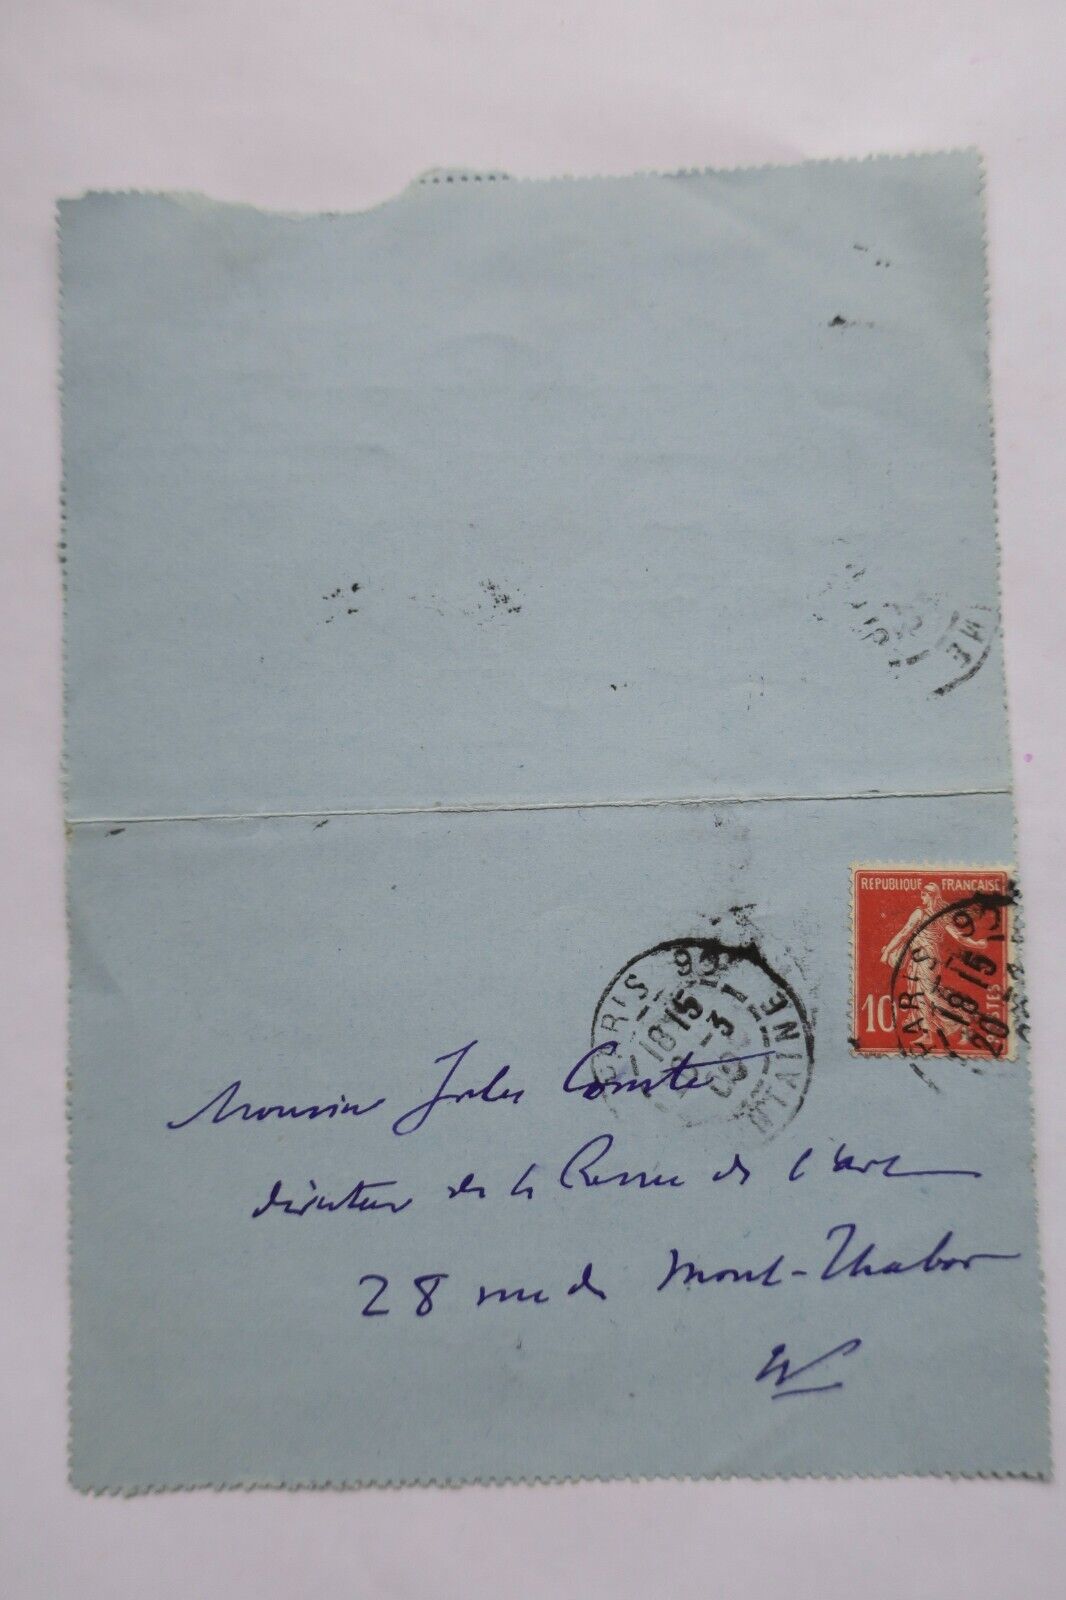 REPUBLIQUE FRANÇAISE
10
POSTES
PARIS 93
18 15
20
PARIS 93
18 15
-3
Monsieur Jules Comte
directeur de la Revue de l'art
28 rue du Mont-Thabor